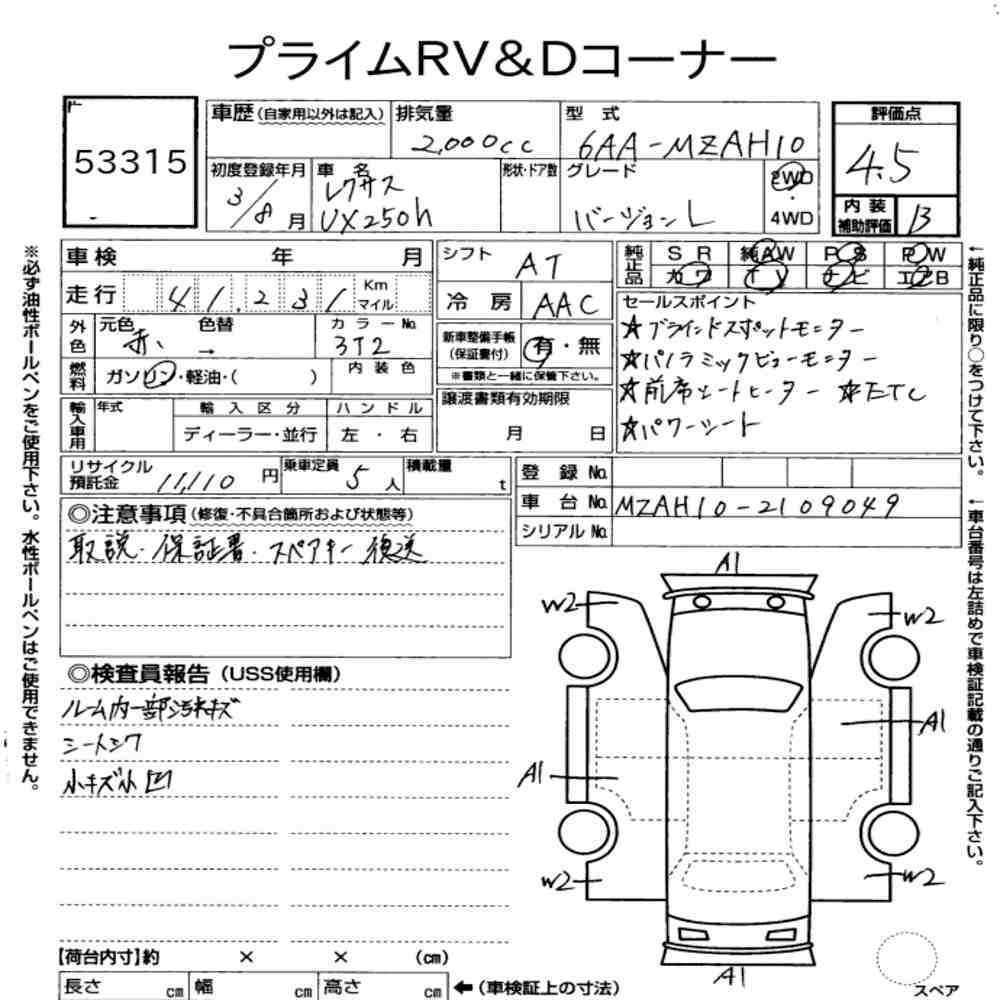 プライムRV&Dコーナー
53315
車歴(自家用以外は記入)
排気量
2,000cc
型式
6AA-MZAH10
評価点
4.5
初度登録年月
3/8月
車名
レクサス
UX250h
形状・ドア数
グレード
バージョンL
2WD
・
4WD
内装
補助評価
B
車検 年 月
走行 41,231 Km マイル
外色
元色 赤 色替 →
カラーNo.
3T2
燃料
ガソリン・軽油・( )
内装色
輸入車用
年式
輸入区分
ディーラー・並行
ハンドル
左・右
シフト
AT
冷房
AAC
新車整備手帳
(保証書付)
有・無
※書類と一緒に保管下さい。
譲渡書類有効期限
月 日
純正品
SR 純AW PS PW
カワ TV ナビ エアB
セールスポイント
★ブラインドスポットモニター
★パノラミックビューモニター
★前席シートヒーター ★ETC
★パワーシート
リサイクル
預託金
11,110円
乗車定員
5人
積載量
t
登録No.
車台No.
MZAH10-2109049
シリアルNo.
◎注意事項(修復・不具合箇所および状態等)
取説・保証書・スペアキー後送
◎検査員報告(USS使用欄)
ルーム内一部汚れキズ
シートシワ
小キズ小凹
A1
W2
W2
A1
A1
W2
W2
A1
スペア
【荷台内寸】約 × × (cm)
長さ cm 幅 cm 高さ cm
←(車検証上の寸法)
※必ず油性ボールペンをご使用下さい。水性ボールペンはご使用できません。
←純正品に限り○をつけて下さい。
←車台番号は左詰めで車検証記載の通りご記入下さい。